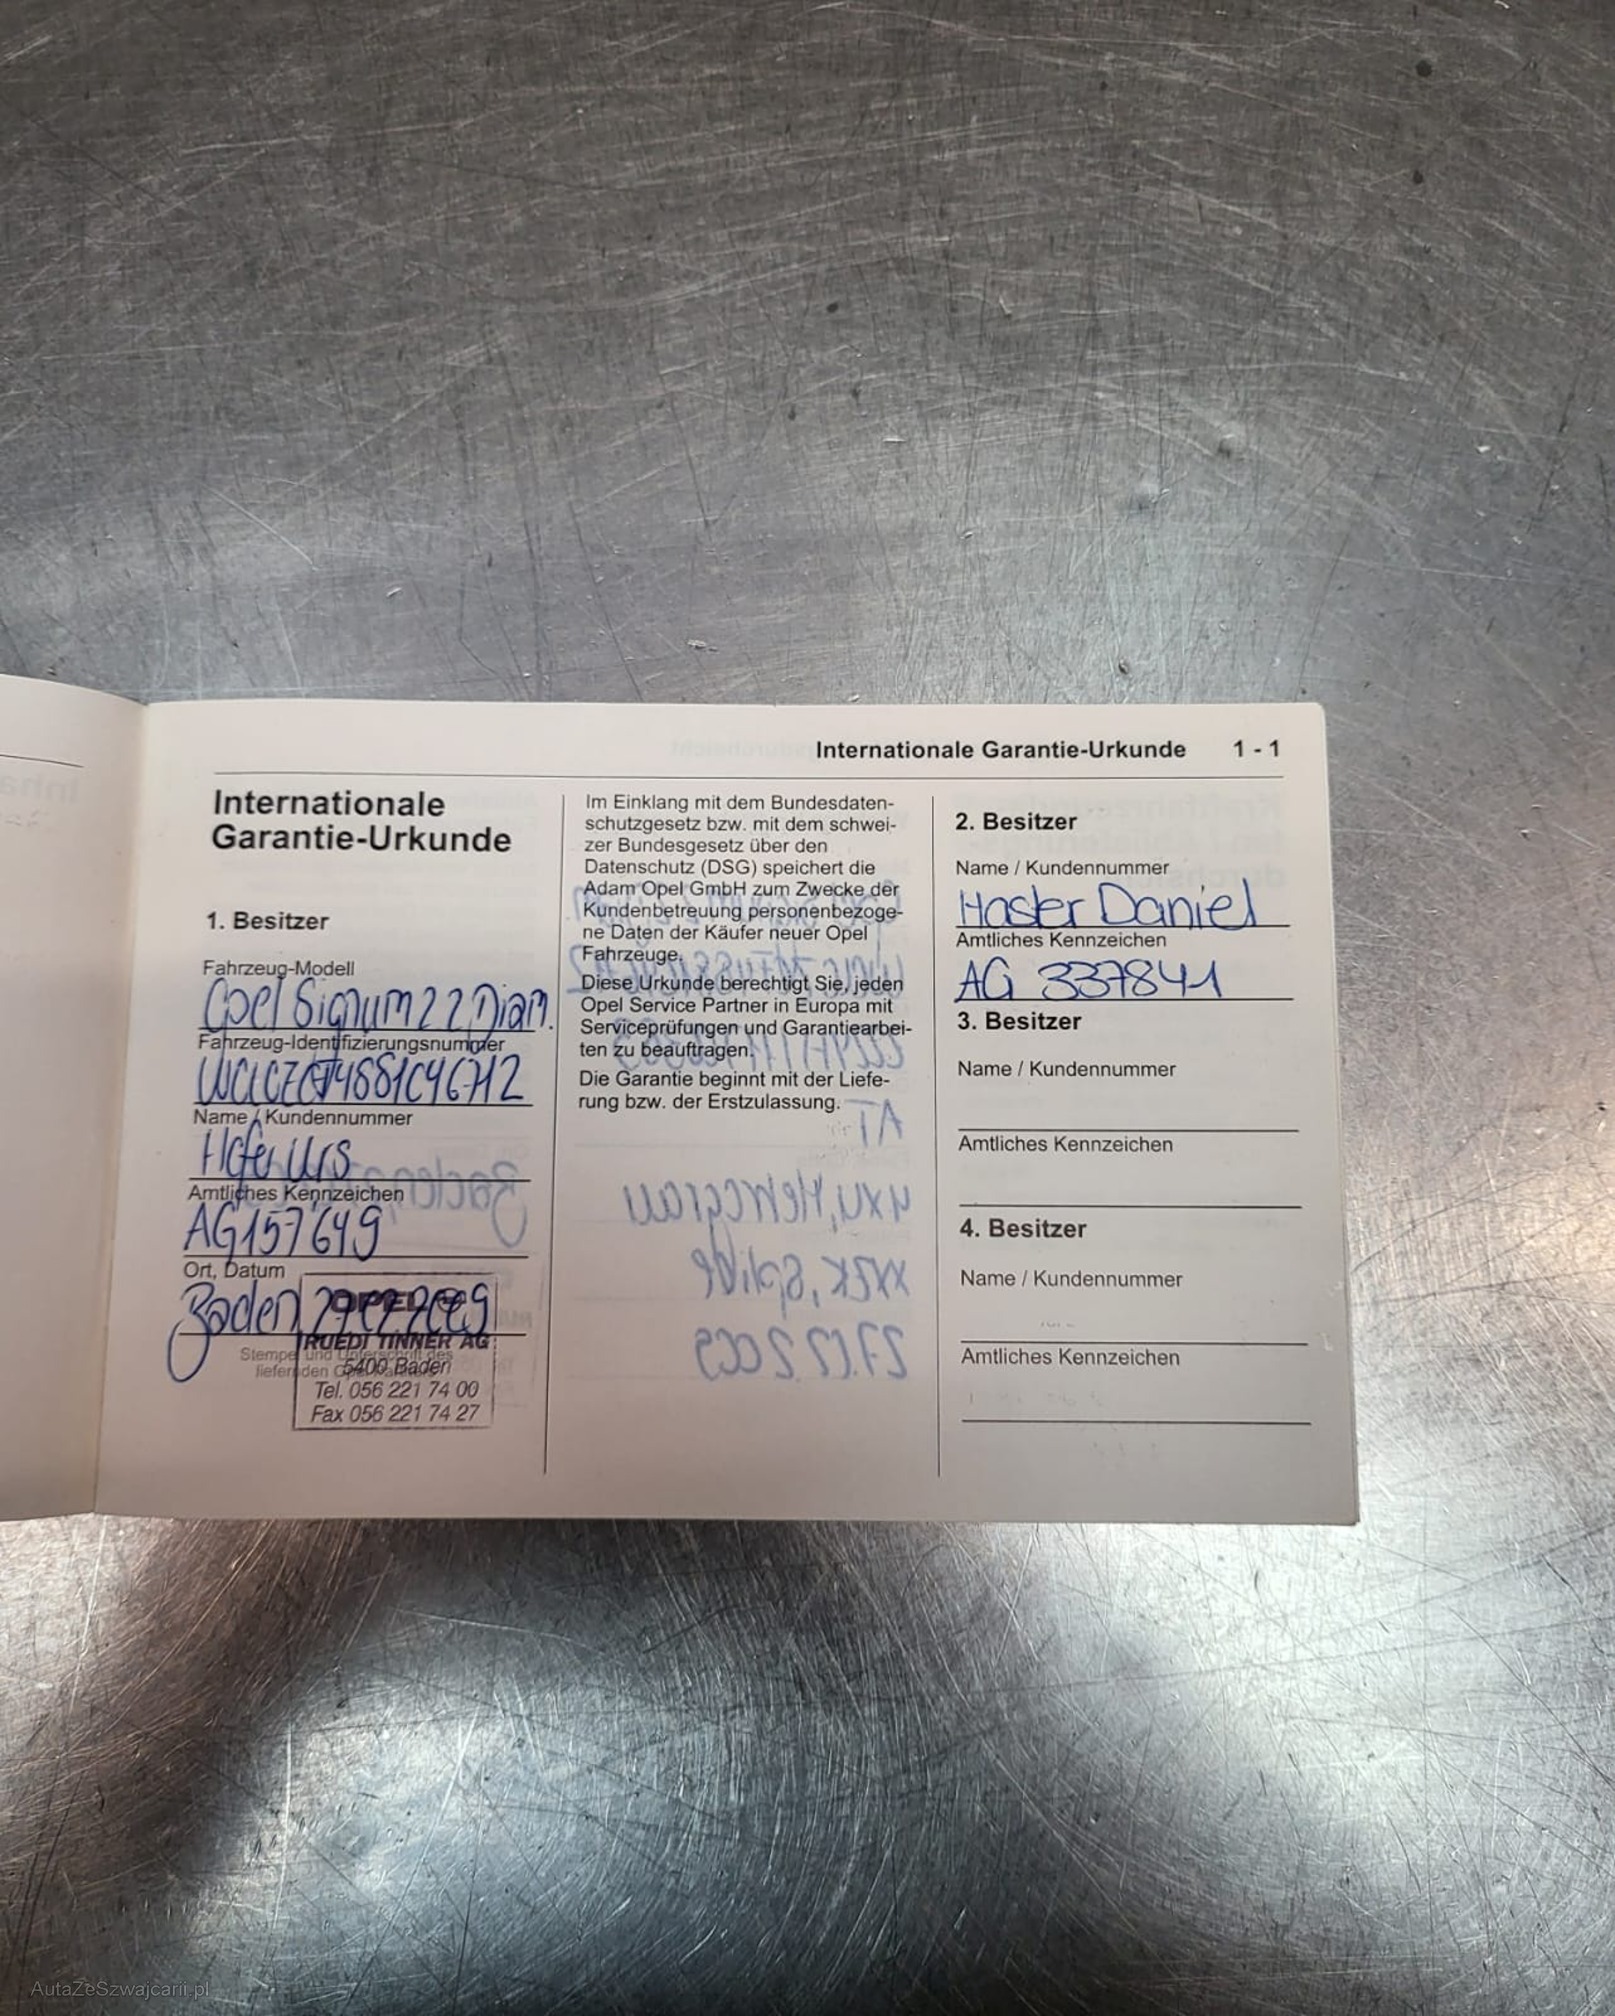 Internationale Garantie-Urkunde 1 - 1
Internationale
Garantie-Urkunde
1. Besitzer
Fahrzeug-Modell
Opel Signum 2 2 Diam.
Fahrzeug-Identifizierungsnummer
Name / Kundennummer
Urs
Amtliches Kennzeichen
AG 157649
Ort, Datum
Baden
OPEL
RUEDI TINNER AG
Stempel und Unterschrift des
5400 Baden
liefernden
Tel. 056 221 74 00
Fax 056 221 74 27
Im Einklang mit dem Bundesdaten-
schutzgesetz bzw. mit dem schwei-
zer Bundesgesetz über den
Datenschutz (DSG) speichert die
Adam Opel GmbH zum Zwecke der
Kundenbetreuung personenbezoge-
ne Daten der Käufer neuer Opel
Fahrzeuge.
Diese Urkunde berechtigt Sie, jeden
Opel Service Partner in Europa mit
Serviceprüfungen und Garantiearbei-
ten zu beauftragen.
Die Garantie beginnt mit der Liefe-
rung bzw. der Erstzulassung.
2. Besitzer
Name / Kundennummer
Hasler Daniel
Amtliches Kennzeichen
AG 337841
3. Besitzer
Name / Kundennummer
Amtliches Kennzeichen
4. Besitzer
Name / Kundennummer
Amtliches Kennzeichen
AutaZeSzwajcarii.pl